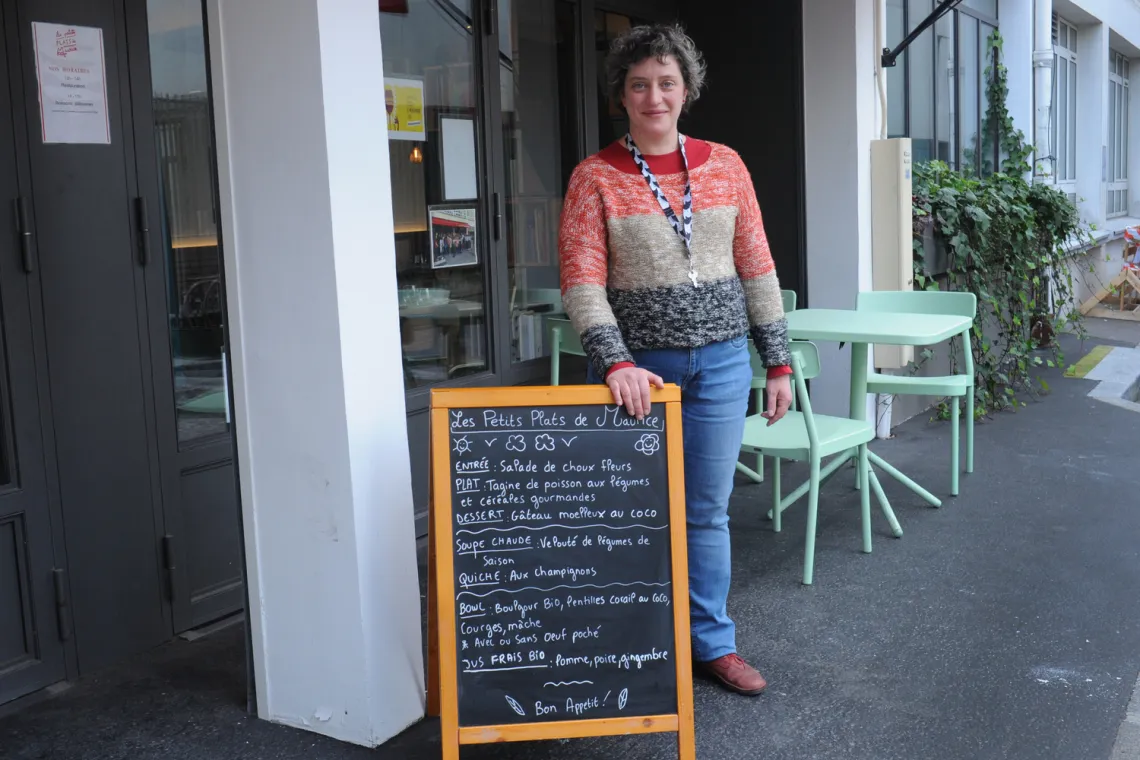 PLATS
HORAIRES
Les Petits Plats de Maurice
ENTRÉE : Salade de choux fleurs
PLAT : Tagine de poisson aux légumes
et céréales gourmandes
DESSERT : Gâteau moelleux au coco
SOUPE CHAUDE : Velouté de légumes de
Saison
QUICHE : Aux champignons
BOWL : Boulgour Bio, lentilles corail au coco,
Courges, mâche
* Avec ou sans oeuf poché
JUS FRAIS BIO : Pomme, poire, gingembre
Bon Appetit !